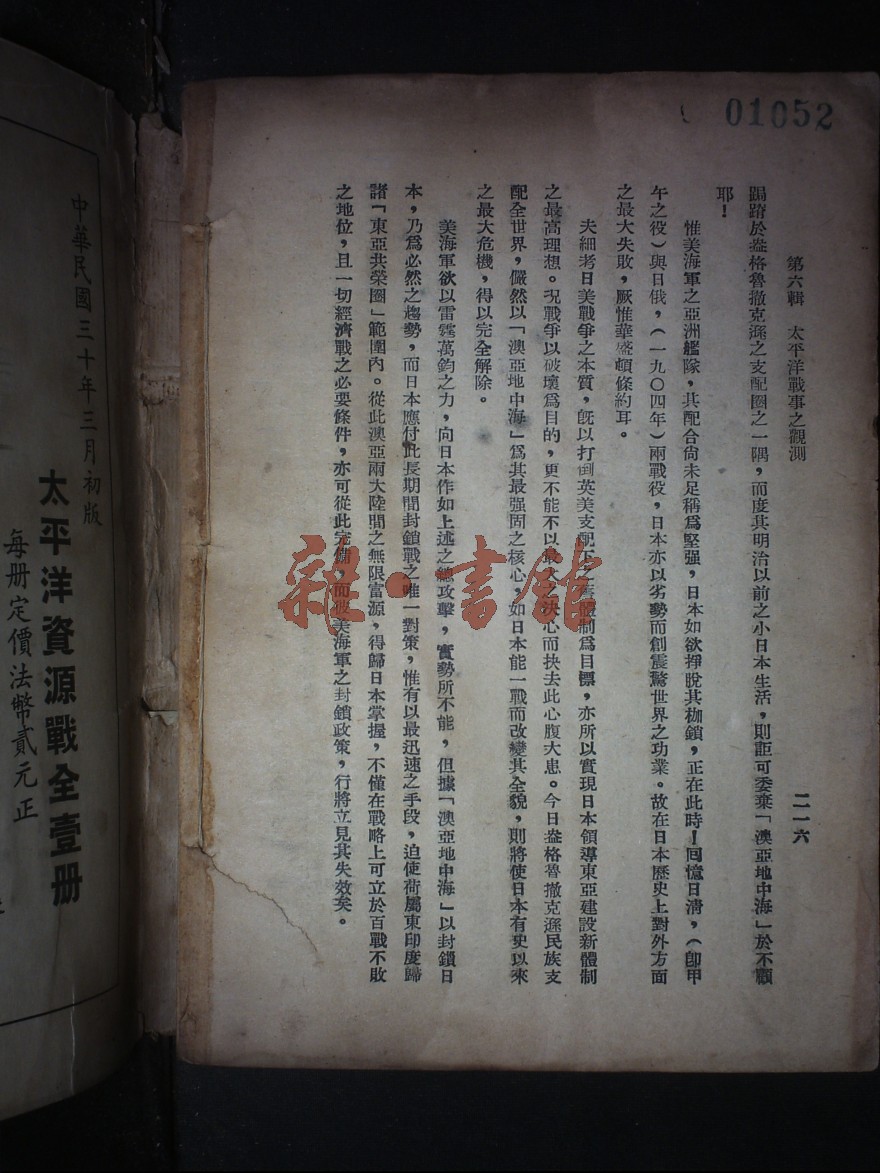 01052
第六輯　太平洋戰事之觀測
二一六
跼蹐於盎格魯撒克遜之支配圈之一隅，而度其明治以前之小日本生活，則詎可委棄「澳亞地中海」於不顧
耶！
惟美海軍之亞洲艦隊，其配合尙未足稱爲堅强，日本如欲掙脫其枷鎖，正在此時！囘憶日淸，（卽甲
午之役）與日俄，（一九〇四年）兩戰役，日本亦以劣勢而創震驚世界之功業。故在日本歷史上對外方面
之最大失敗，厥惟華盛頓條約耳。
夫細考日美戰爭之本質，旣以打倒英美支配下之舊體制爲目標，亦所以實現日本領導東亞建設新體制
之最高理想。況戰爭以破壞爲目的，更不能不以最大之決心而抉去此心腹大患。今日盎格魯撒克遜民族支
配全世界，儼然以「澳亞地中海」爲其最强固之核心，如日本能一戰而改變其全貌，則將使日本有史以來
之最大危機，得以完全解除。
美海軍欲以雷霆萬鈞之力，向日本作如上述之總攻擊，實勢所不能，但據「澳亞地中海」以封鎖日
本，乃爲必然之趨勢，而日本應付此長期間封鎖戰之唯一對策，惟有以最迅速之手段，迫使荷屬東印度歸
諸「東亞共榮圈」範圍內。從此澳亞兩大陸間之無限富源，得歸日本掌握，不僅在戰略上可立於百戰不敗
之地位，且一切經濟戰之必要條件，亦可從此完備，而彼美海軍之封鎖政策，行將立見其失效矣。
雜·書館
中華民國三十年三月初版
太平洋資源戰全壹册
每册定價法幣貳元正